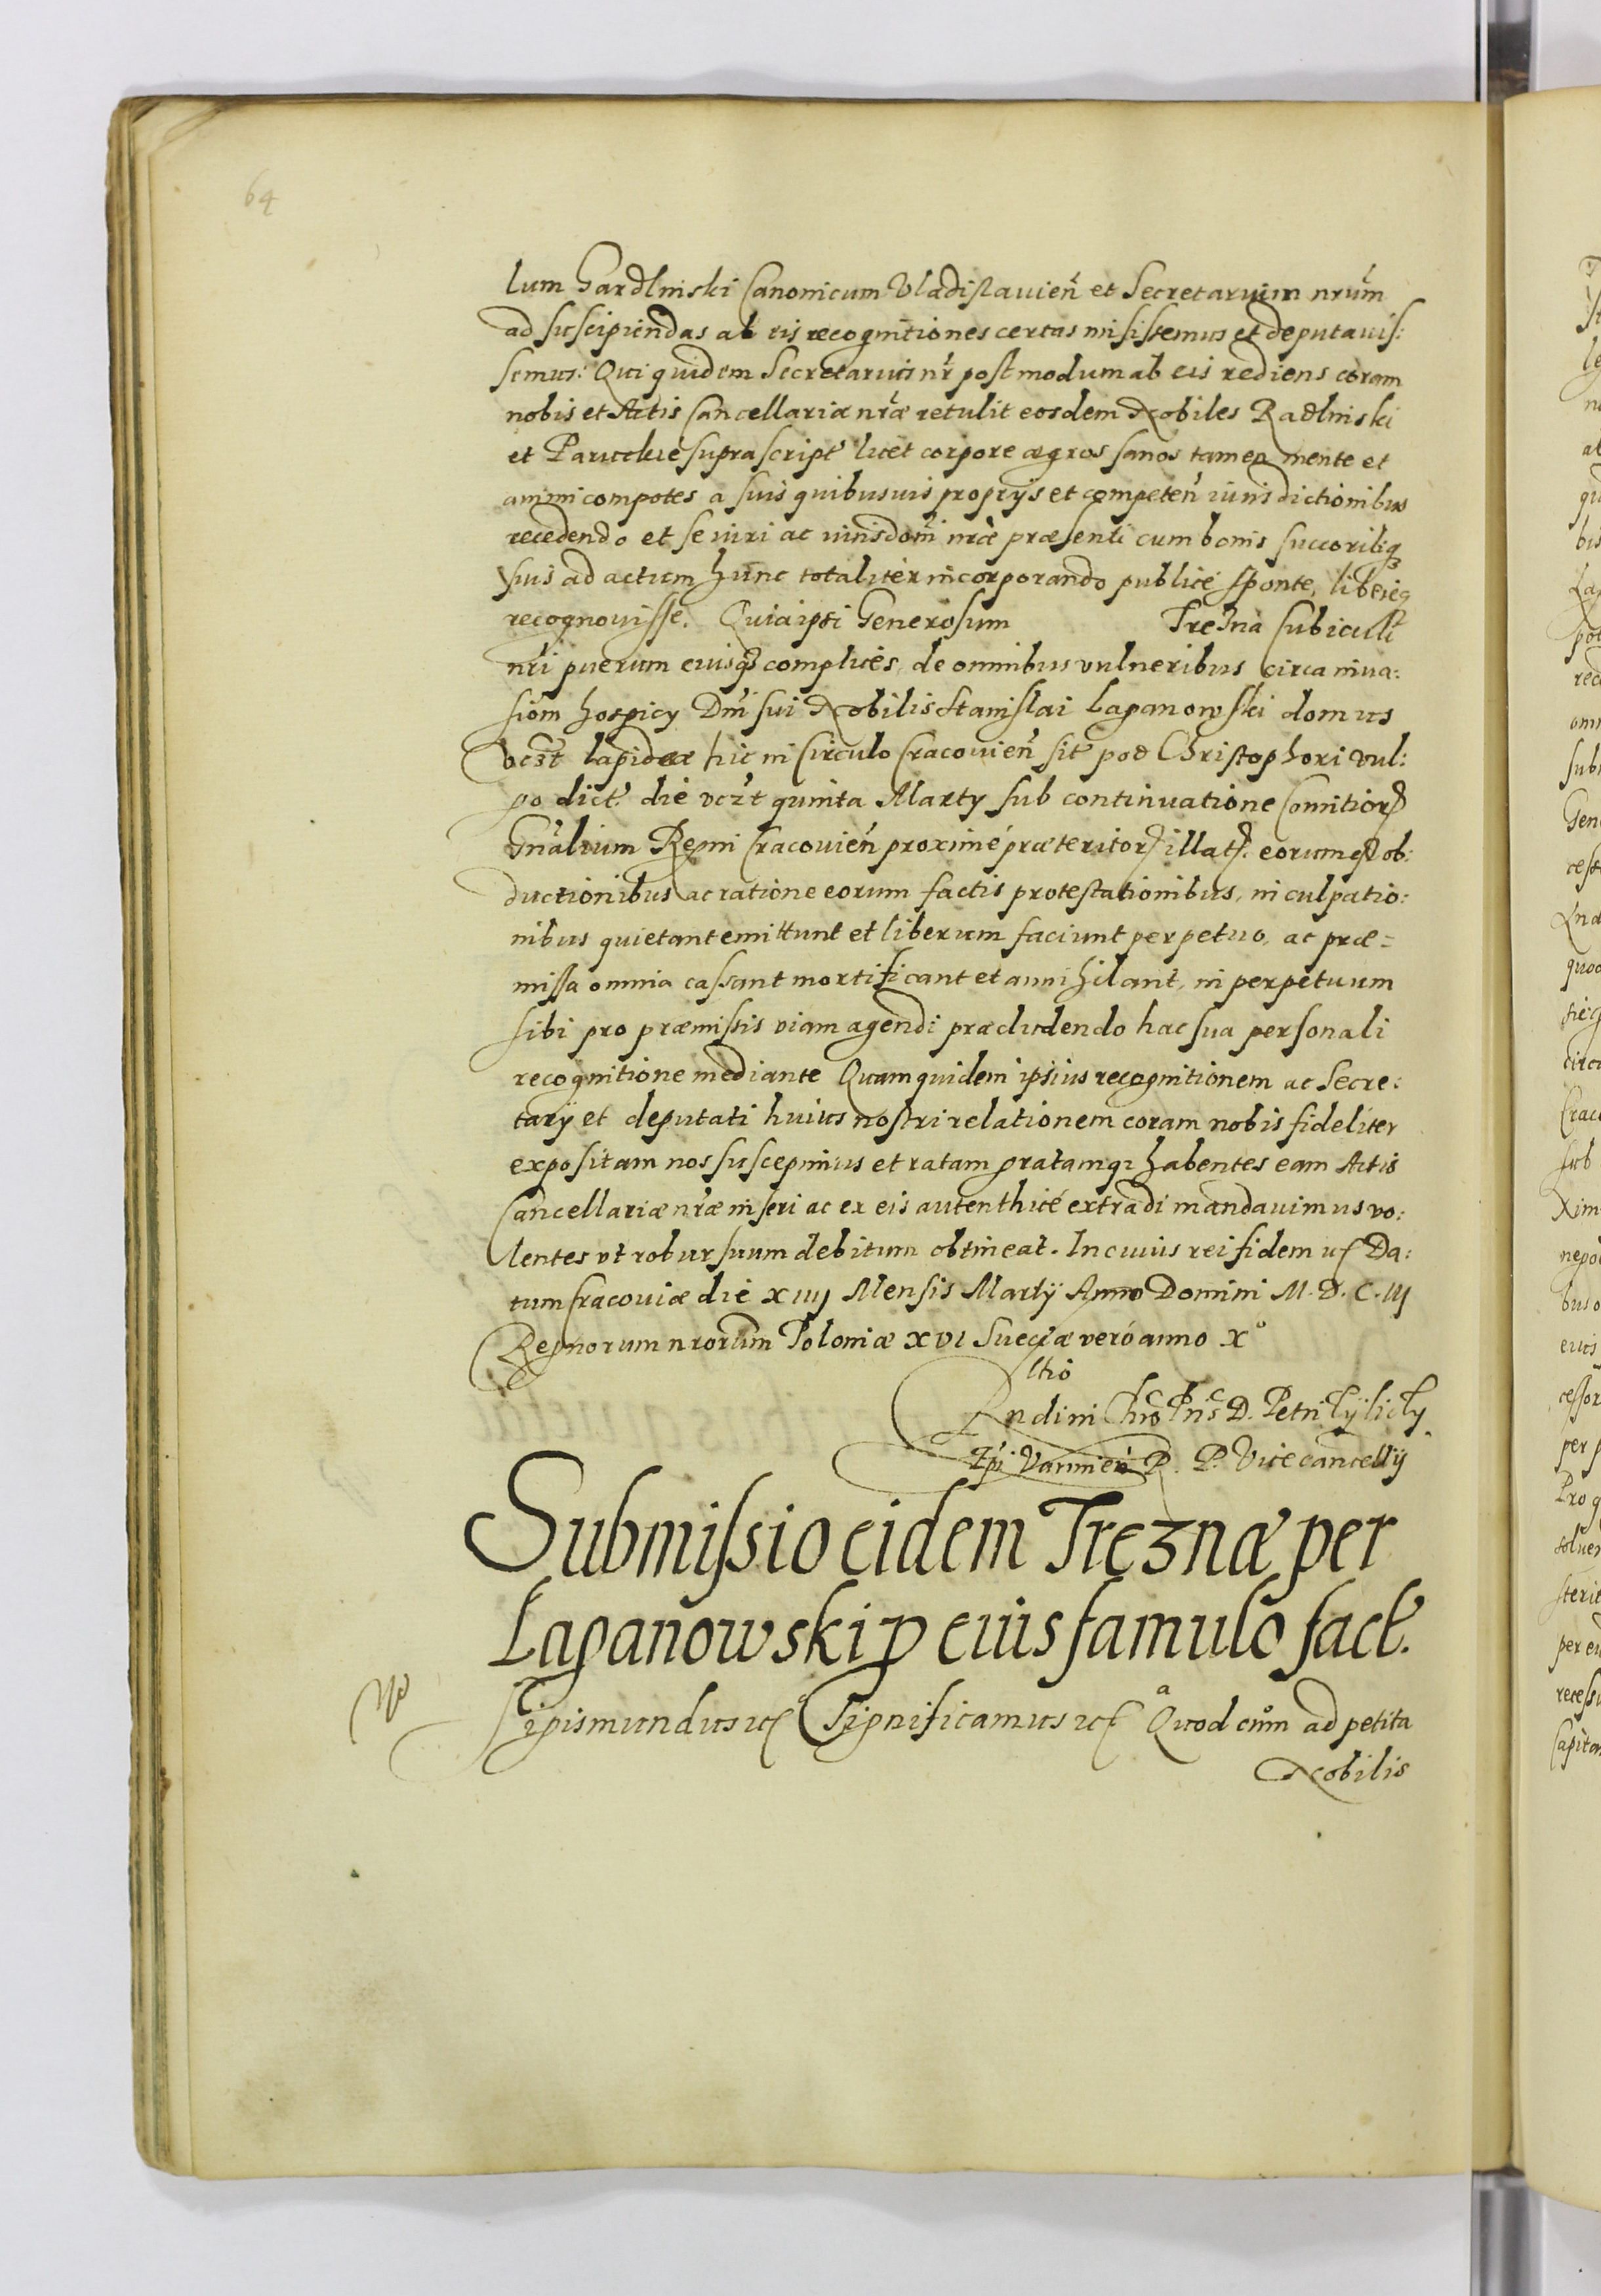 64
lum Gardlinski Canonicum Vladislauien̄ et Secretarium nr̄um
ad suscipiendas ab eis recognitiones certas misissemus et deputauis:
semus: Qui quidem Secretarius nr̄ postmodum ab eis rediens coram
nobis et Actis Cancellariæ nr̄æ retulit eosdem Nobiles Radlinski
et suprascript licet corpore ægros sanos tamen mente et
animi compotes a suis quibusuis proprijs et competen̄ iurisdictionibus
recedendo et se iuri ac iurisdoni nr̄æ præsenti cum bonis succoribq
suis ad actum hunc totaliter incorporando publicè sponte, libereq
recognouisse. Quia ipsi Generosum Trezna subiecti
nr̄i puerum eiusq complices, de omnibus vulneribus circa inua:
siom hospicy Dni sui Nobilis Stanislai Laganowski domus
vczt lapideæ hic in Circulo Cracouien̄ sit pod Christophori vul:
go dict. die vczt quinta Marty sub continuatione Comitior
Gn̄alium Regni Cracouien̄ proximè præteritor illat. eorumq ob:
ductionibus ac ratione eorum factis protestationibus, inculpatio:
nibus quietant emittunt et liberum faciunt perpetuo, ac præ=
missa omnia cassant mortificant et annihilant, in perpetuum
sibi pro præmissis viam agendi præcludendo hac sua personali
recognitione mediante Quam quidem ipsius recognitionem ac Secre:
tarij et deputati huius nostri relationem coram nobis fideliter
expositam nos suscepimus et ratam gratamq habentes eam Actis
Cancellariæ nr̄æ inseri ac ex eis autenthicè extradi mandauimus vo:
lentes vt robur suum debitum obtineat. In cuius rei fidem Da:
tum Cracouiæ die XIIIJ Mensis Martij Anno Domini M.D.C.IIJ
Regnorum nrorum Poloniæ XVI Sueciæ verò anno X°
D. Petri Tylicky
Epi Varmien R. P. Vicecancellij
Submissio eidem Treznæ per
Laganowski p eius famulo fact.
Sigismundus Significamus Quod cum ad petita
Nobilis